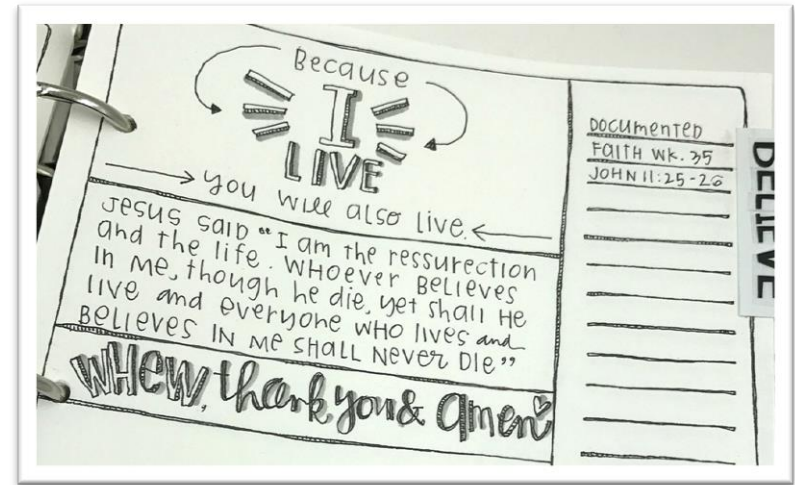 Because
I
LIVE
you will also live.
Jesus said "I am the ressurection
and the life. Whoever believes
in me, though he die, yet shall he
live and everyone who lives and
believes in me shall never die"
WHEW, thank you & amen
DOCUMENTED
FAITH WK. 35
JOHN 11:25-26
BELIEVE